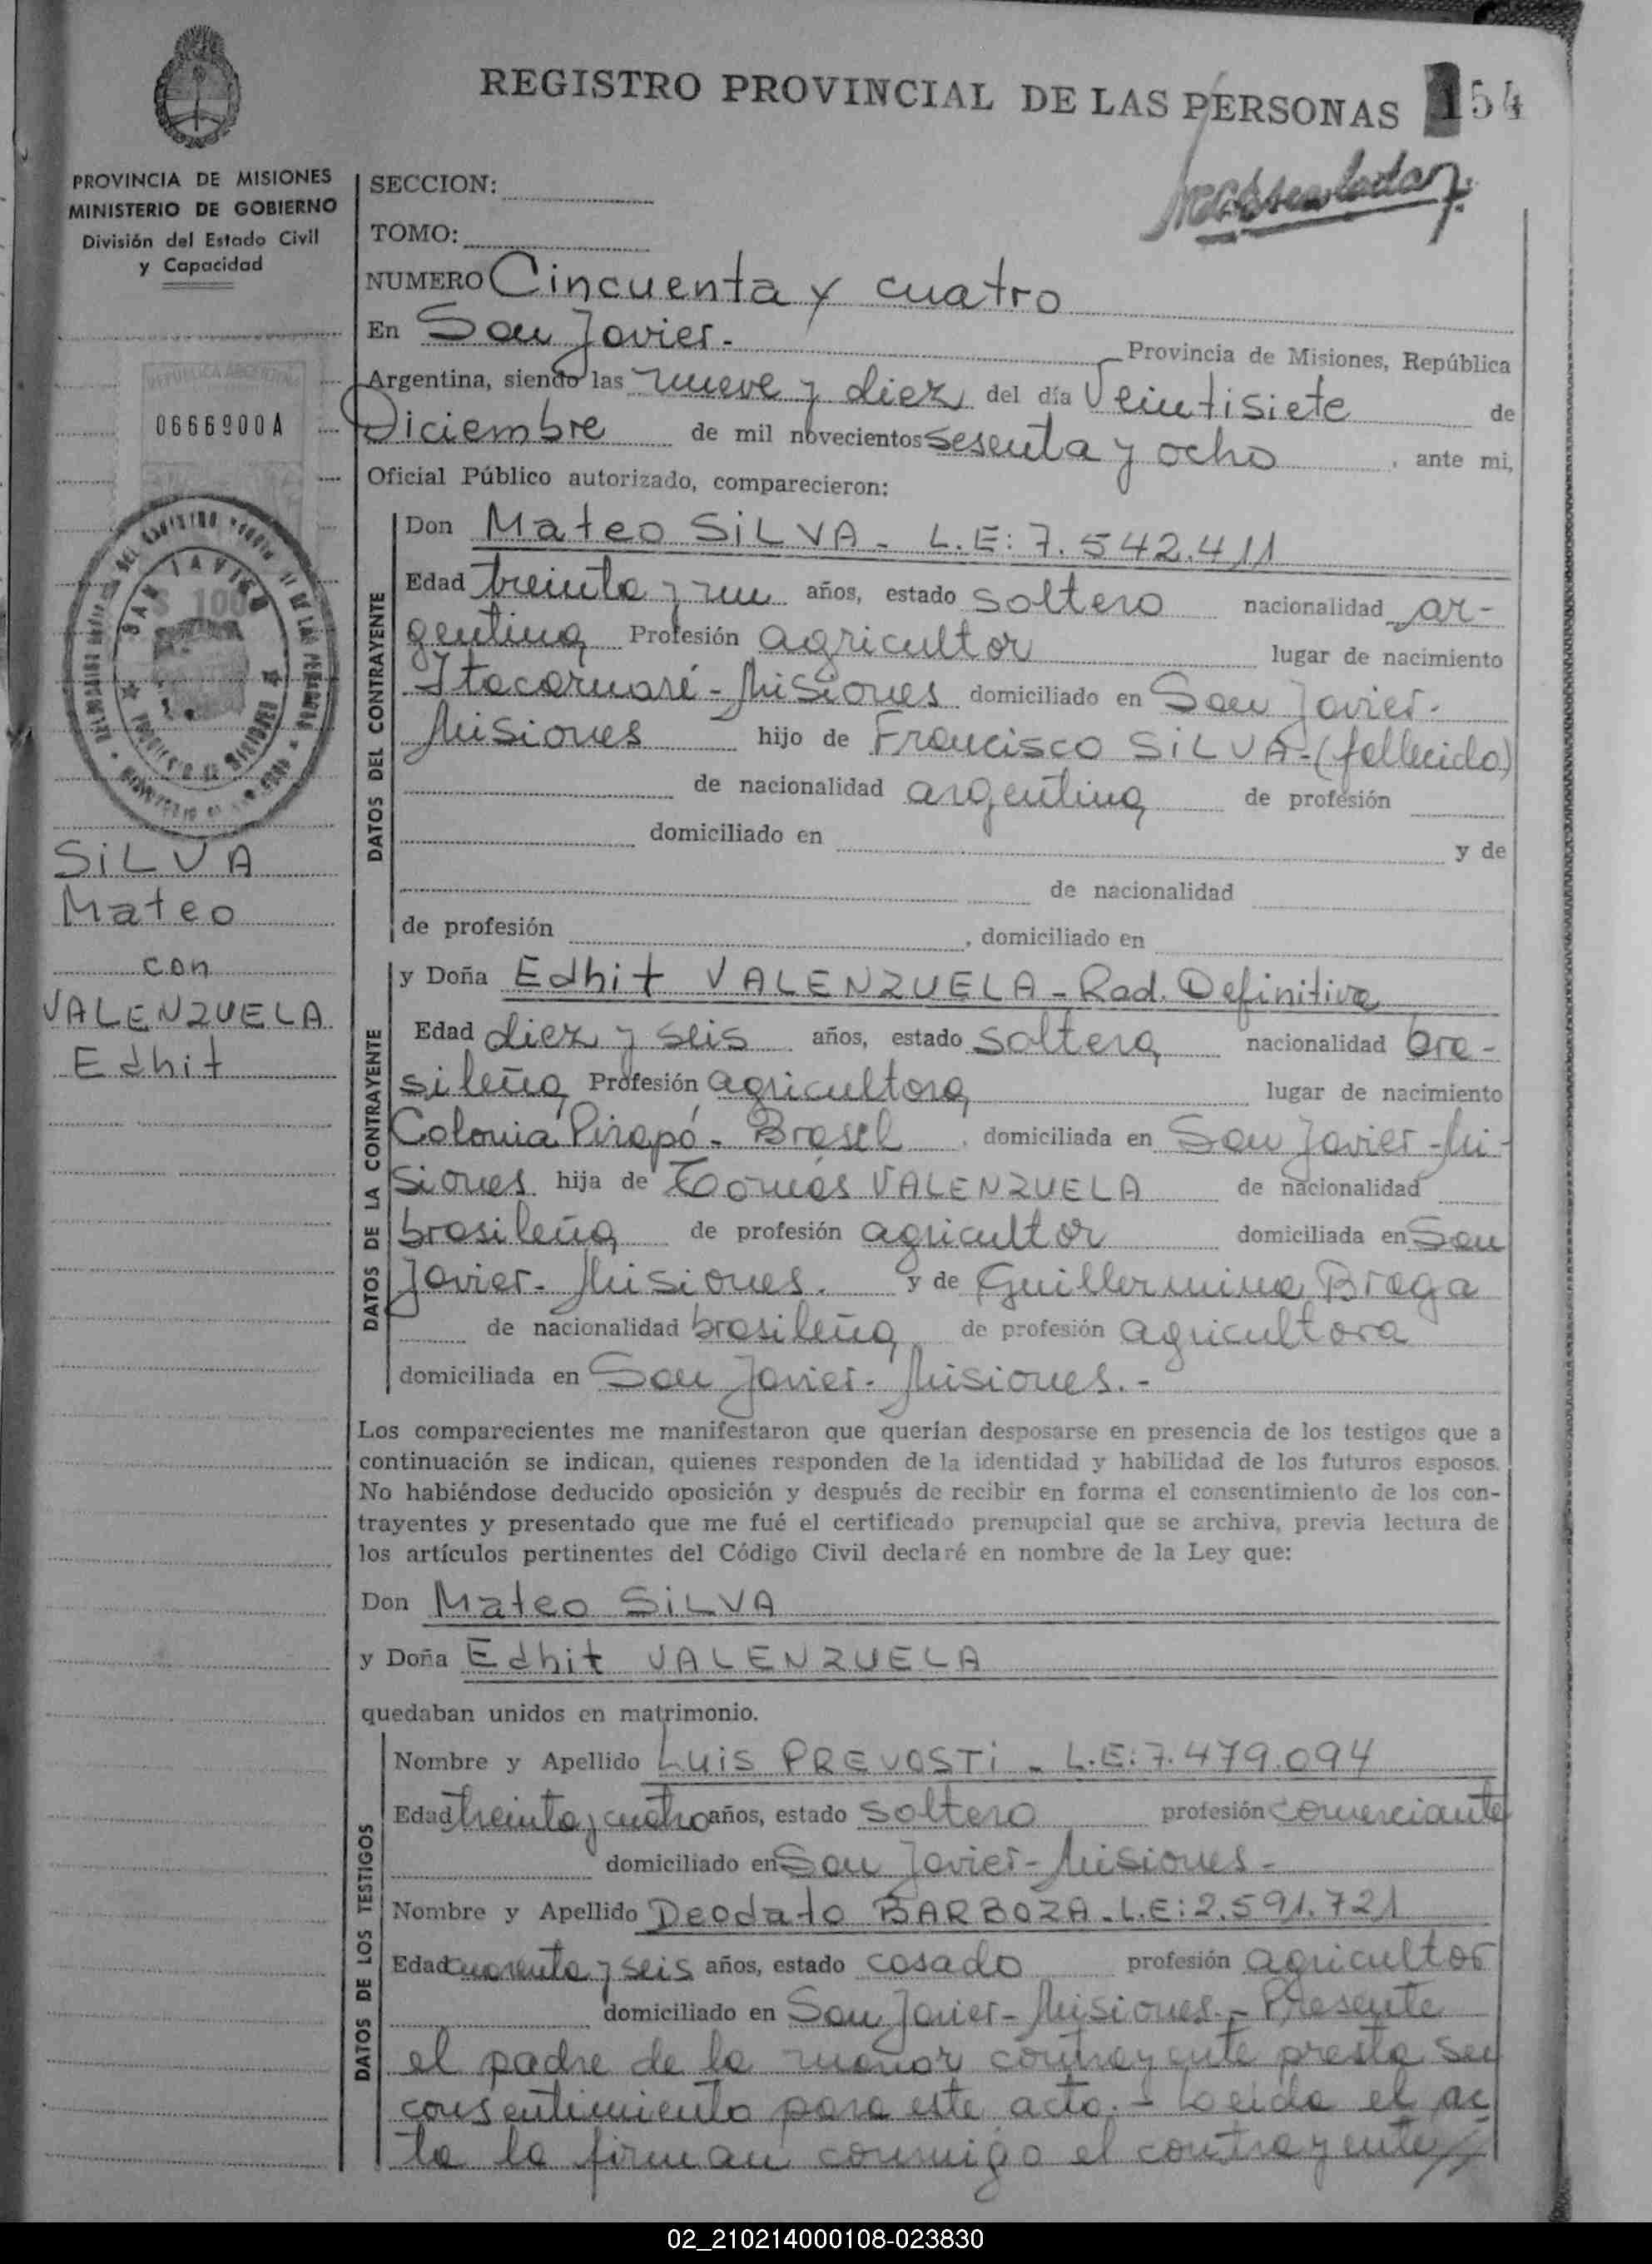 REGISTRO PROVINCIAL DE LAS PERSONAS 154
PROVINCIA DE MISIONES
MINISTERIO DE GOBIERNO
División del Estado Civil
y Capacidad
0666900A
SAN JAVIER
$ 100
SILVA
Mateo
con
VALENZUELA
Edhit
SECCION:
TOMO:
NUMERO Cincuenta y cuatro
En San Javier.- Provincia de Misiones, República
Argentina, siendo las nueve y diez del día Veintisiete de
Diciembre de mil novecientos sesenta y ocho, ante mi,
Oficial Público autorizado, comparecieron:
DATOS DEL CONTRAYENTE
Don Mateo SILVA - L.E: 7.542.411
Edad treinta y un años, estado soltero nacionalidad ar-
gentina Profesión agricultor lugar de nacimiento
Itacaruaré - Misiones domiciliado en San Javier.
Misiones hijo de Francisco SILVA - (fallecido)
de nacionalidad argentina de profesión
domiciliado en y de
de nacionalidad
de profesión , domiciliado en
DATOS DE LA CONTRAYENTE
y Doña Edhit VALENZUELA - Rad. Definitiva
Edad diez y seis años, estado soltera nacionalidad bra-
sileña Profesión agricultora lugar de nacimiento
Colonia Pirapó - Brasil, domiciliada en San Javier - Mi-
siones hija de Tomás VALENZUELA de nacionalidad
brasileña de profesión agricultor domiciliada en San
Javier - Misiones. y de Guillermina Braga
de nacionalidad brasileña de profesión agricultora
domiciliada en San Javier - Misiones.-
Los comparecientes me manifestaron que querían desposarse en presencia de los testigos que a
continuación se indican, quienes responden de la identidad y habilidad de los futuros esposos.
No habiéndose deducido oposición y después de recibir en forma el consentimiento de los con-
trayentes y presentado que me fué el certificado prenupcial que se archiva, previa lectura de
los artículos pertinentes del Código Civil declaré en nombre de la Ley que:
Don Mateo SILVA
y Doña Edhit VALENZUELA
quedaban unidos en matrimonio.
DATOS DE LOS TESTIGOS
Nombre y Apellido LUIS PREVOSTI - L.E: 7.479.094
Edad treinta y cuatro años, estado soltero profesión comerciante
domiciliado en San Javier - Misiones -
Nombre y Apellido Deodato BARBOZA - L.E: 2.591.721
Edad cuarenta y seis años, estado casado profesión agricultor
domiciliado en San Javier - Misiones - Presente
el padre de la menor contrayente presta su
consentimiento para este acto.- Leida el ac
ta la firman conmigo el contrayente//
02_210214000108-023830